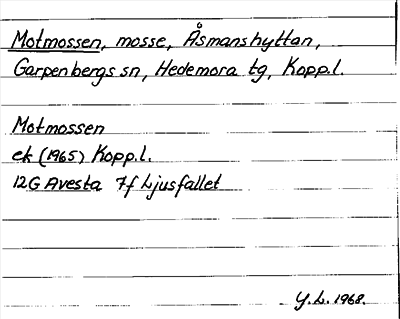 Motmossen, mosse, Åsmanshyttan,
Garpenbergs sn, Hedemora tg, Kopp.l.
Motmossen
ek (1965) Kopp.l.
12G Avesta 7f Ljusfallet
Y.L. 1968.